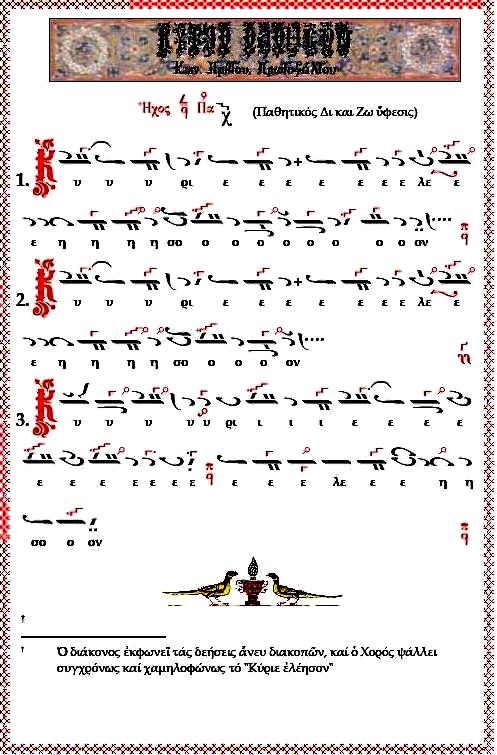 Κων. Πρίγγου, Πρωτοψάλτου
Ἦχος Πα (Παθητικός Δι και Ζω ὕφεσις)
1. Κ υ υ υ ρι ε ε ε ε ε ε ε λε ε
ε η η η η σο ο ο ο ο ο ο ο ο ον
2. Κ υ υ υ ρι ε ε ε ε ε ε ε λε ε
ε η η η η σο ο ο ο ον
3. Κ υ υ υ υ υ ρι ι ι ι ε ε ε ε ε
ε ε ε ε ε ε ε ε ε ε λε ε ε η η
σο ο ον
†
† Ὁ διάκονος ἐκφωνεῖ τάς δεήσεις ἄνευ διακοπῶν, καί ὁ Χορός ψάλλει
συγχρόνως καί χαμηλοφώνως τό "Κύριε ἐλέησον"